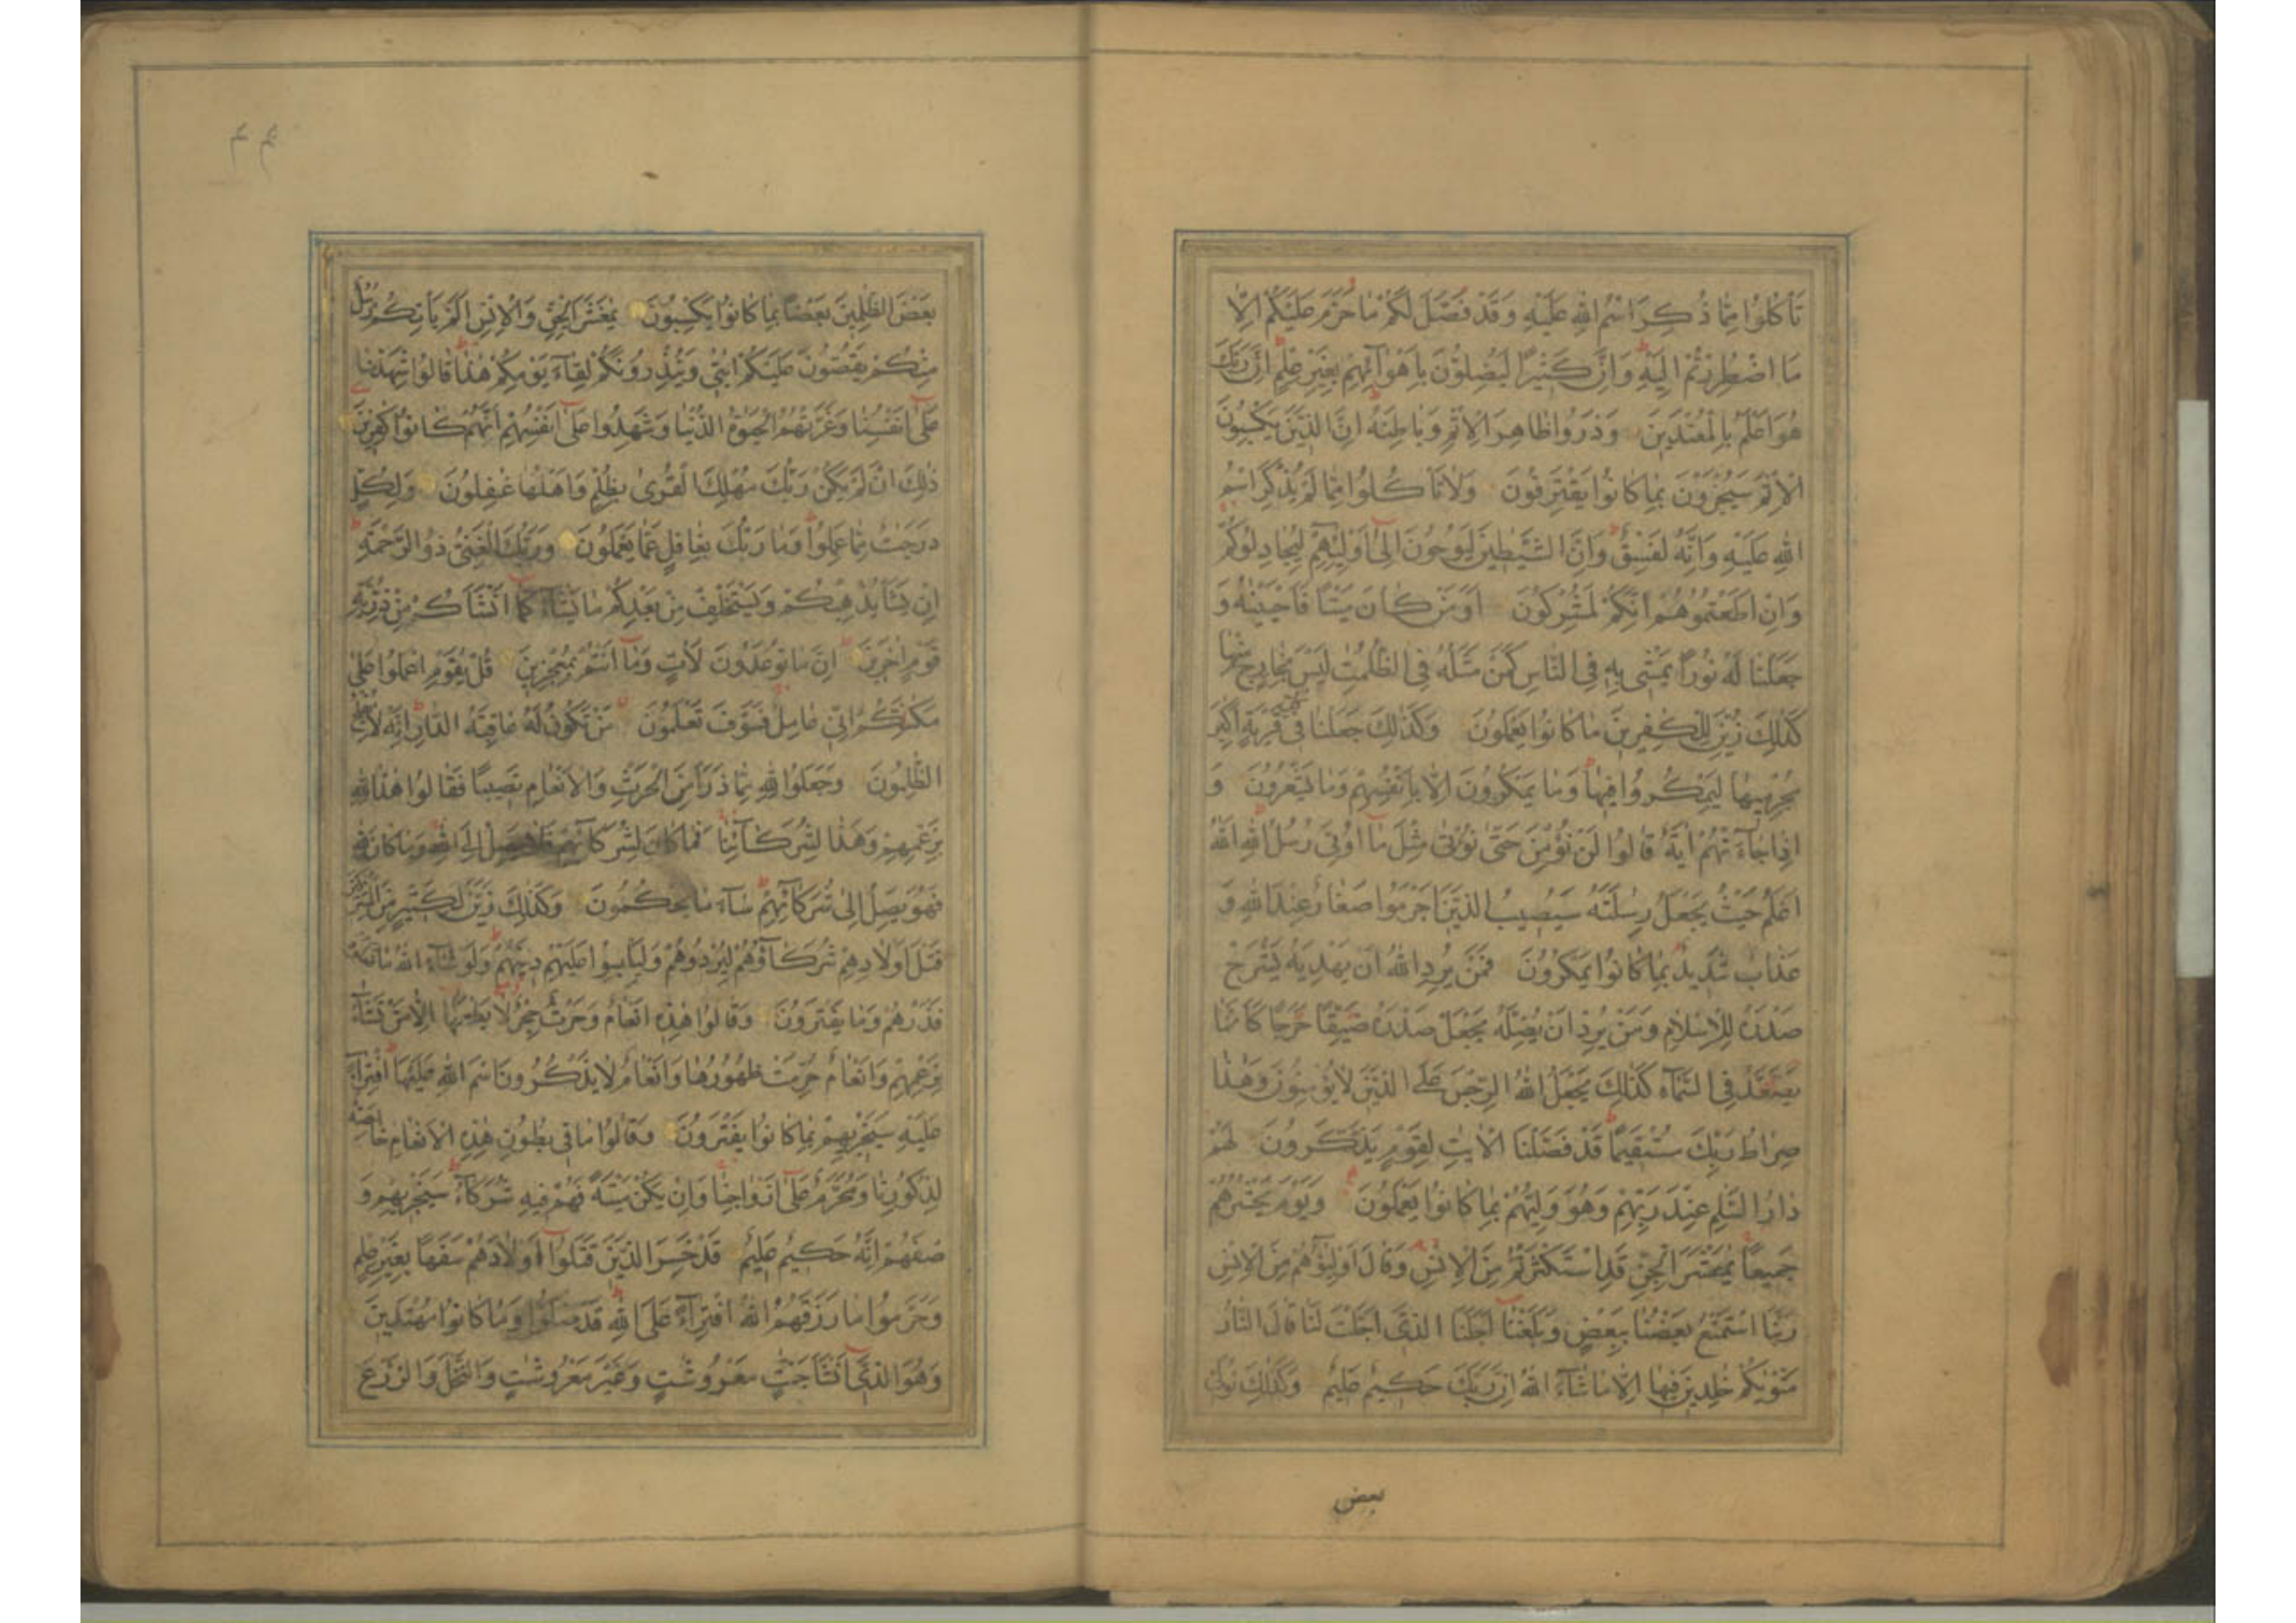 تَأْكُلُوا مِمَّا ذُكِرَ اسْمُ اللهِ عَلَيْهِ وَقَدْ فَصَّلَ لَكُمْ مَا حَرَّمَ عَلَيْكُمْ اِلَّا
مَا اضْطُرِرْتُمْ اِلَيْهِ وَاِنَّ كَثِيرًا لَيُضِلُّونَ بِاَهْوَآئِهِمْ بِغَيْرِ عِلْمٍ اِنَّ رَبَّكَ
هُوَ اَعْلَمُ بِالْمُعْتَدِينَ وَذَرُوا ظَاهِرَ الْاِثْمِ وَبَاطِنَهُ اِنَّ الَّذِينَ يَكْسِبُونَ
الْاِثْمَ سَيُجْزَوْنَ بِمَا كَانُوا يَقْتَرِفُونَ وَلَا تَأْكُلُوا مِمَّا لَمْ يُذْكَرِ اسْمُ
اللهِ عَلَيْهِ وَاِنَّهُ لَفِسْقٌ وَاِنَّ الشَّيٰطِينَ لَيُوحُونَ اِلٰى اَوْلِيٰٓئِهِمْ لِيُجَادِلُوكُمْ
وَاِنْ اَطَعْتُمُوهُمْ اِنَّكُمْ لَمُشْرِكُونَ اَوَمَنْ كَانَ مَيْتًا فَاَحْيَيْنٰهُ وَ
جَعَلْنَا لَهُ نُورًا يَمْشِي بِهِ فِي النَّاسِ كَمَنْ مَثَلُهُ فِي الظُّلُمٰتِ لَيْسَ بِخَارِجٍ مِنْهَا
كَذٰلِكَ زُيِّنَ لِلْكٰفِرِينَ مَا كَانُوا يَعْمَلُونَ وَكَذٰلِكَ جَعَلْنَا فِي كُلِّ قَرْيَةٍ اَكٰبِرَ
مُجْرِمِيهَا لِيَمْكُرُوا فِيهَا وَمَا يَمْكُرُونَ اِلَّا بِاَنْفُسِهِمْ وَمَا يَشْعُرُونَ وَ
اِذَا جَآءَتْهُمْ اٰيَةٌ قَالُوا لَنْ نُؤْمِنَ حَتّٰى نُؤْتٰى مِثْلَ مَا اُوتِيَ رُسُلُ اللهِ اللهُ
اَعْلَمُ حَيْثُ يَجْعَلُ رِسٰلَتَهُ سَيُصِيبُ الَّذِينَ اَجْرَمُوا صَغَارٌ عِنْدَ اللهِ وَ
عَذَابٌ شَدِيدٌ بِمَا كَانُوا يَمْكُرُونَ فَمَنْ يُرِدِ اللهُ اَنْ يَهْدِيَهُ يَشْرَحْ
صَدْرَهُ لِلْاِسْلَامِ وَمَنْ يُرِدْ اَنْ يُضِلَّهُ يَجْعَلْ صَدْرَهُ ضَيِّقًا حَرَجًا كَاَنَّمَا
يَصَّعَّدُ فِي السَّمَآءِ كَذٰلِكَ يَجْعَلُ اللهُ الرِّجْسَ عَلَى الَّذِينَ لَا يُؤْمِنُونَ وَهٰذَا
صِرَاطُ رَبِّكَ مُسْتَقِيمًا قَدْ فَصَّلْنَا الْاٰيٰتِ لِقَوْمٍ يَذَّكَّرُونَ لَهُمْ
دَارُ السَّلٰمِ عِنْدَ رَبِّهِمْ وَهُوَ وَلِيُّهُمْ بِمَا كَانُوا يَعْمَلُونَ وَيَوْمَ يَحْشُرُهُمْ
جَمِيعًا يٰمَعْشَرَ الْجِنِّ قَدِ اسْتَكْثَرْتُمْ مِنَ الْاِنْسِ وَقَالَ اَوْلِيٰٓؤُهُمْ مِنَ الْاِنْسِ
رَبَّنَا اسْتَمْتَعَ بَعْضُنَا بِبَعْضٍ وَبَلَغْنَا اَجَلَنَا الَّذِي اَجَّلْتَ لَنَا قَالَ النَّارُ
مَثْوٰيكُمْ خٰلِدِينَ فِيهَا اِلَّا مَا شَآءَ اللهُ اِنَّ رَبَّكَ حَكِيمٌ عَلِيمٌ وَكَذٰلِكَ نُوَلِّي
بعض
بَعْضَ الظّٰلِمِينَ بَعْضًا بِمَا كَانُوا يَكْسِبُونَ يٰمَعْشَرَ الْجِنِّ وَالْاِنْسِ اَلَمْ يَأْتِكُمْ رُسُلٌ
مِنْكُمْ يَقُصُّونَ عَلَيْكُمْ اٰيٰتِي وَيُنْذِرُونَكُمْ لِقَآءَ يَوْمِكُمْ هٰذَا قَالُوا شَهِدْنَا
عَلٰى اَنْفُسِنَا وَغَرَّتْهُمُ الْحَيٰوةُ الدُّنْيَا وَشَهِدُوا عَلٰى اَنْفُسِهِمْ اَنَّهُمْ كَانُوا كٰفِرِينَ
ذٰلِكَ اَنْ لَمْ يَكُنْ رَبُّكَ مُهْلِكَ الْقُرٰى بِظُلْمٍ وَاَهْلُهَا غٰفِلُونَ وَلِكُلٍّ
دَرَجٰتٌ مِمَّا عَمِلُوا وَمَا رَبُّكَ بِغَافِلٍ عَمَّا يَعْمَلُونَ وَرَبُّكَ الْغَنِيُّ ذُو الرَّحْمَةِ
اِنْ يَشَأْ يُذْهِبْكُمْ وَيَسْتَخْلِفْ مِنْ بَعْدِكُمْ مَا يَشَآءُ كَمَا اَنْشَاَكُمْ مِنْ ذُرِّيَّةِ
قَوْمٍ اٰخَرِينَ اِنَّ مَا تُوعَدُونَ لَاٰتٍ وَمَا اَنْتُمْ بِمُعْجِزِينَ قُلْ يٰقَوْمِ اعْمَلُوا عَلٰى
مَكَانَتِكُمْ اِنِّي عَامِلٌ فَسَوْفَ تَعْلَمُونَ مَنْ تَكُونُ لَهُ عَاقِبَةُ الدَّارِ اِنَّهُ لَا يُفْلِحُ
الظّٰلِمُونَ وَجَعَلُوا لِلّٰهِ مِمَّا ذَرَاَ مِنَ الْحَرْثِ وَالْاَنْعَامِ نَصِيبًا فَقَالُوا هٰذَا لِلّٰهِ
بِزَعْمِهِمْ وَهٰذَا لِشُرَكَآئِنَا فَمَا كَانَ لِشُرَكَآئِهِمْ فَلَا يَصِلُ اِلَى اللهِ وَمَا كَانَ لِلّٰهِ
فَهُوَ يَصِلُ اِلٰى شُرَكَآئِهِمْ سَآءَ مَا يَحْكُمُونَ وَكَذٰلِكَ زَيَّنَ لِكَثِيرٍ مِنَ الْمُشْرِكِينَ
قَتْلَ اَوْلَادِهِمْ شُرَكَآؤُهُمْ لِيُرْدُوهُمْ وَلِيَلْبِسُوا عَلَيْهِمْ دِينَهُمْ وَلَوْ شَآءَ اللهُ مَا فَعَلُوهُ
فَذَرْهُمْ وَمَا يَفْتَرُونَ وَقَالُوا هٰذِهِ اَنْعَامٌ وَحَرْثٌ حِجْرٌ لَا يَطْعَمُهَا اِلَّا مَنْ نَشَآءُ
بِزَعْمِهِمْ وَاَنْعَامٌ حُرِّمَتْ ظُهُورُهَا وَاَنْعَامٌ لَا يَذْكُرُونَ اسْمَ اللهِ عَلَيْهَا افْتِرَآءً
عَلَيْهِ سَيَجْزِيهِمْ بِمَا كَانُوا يَفْتَرُونَ وَقَالُوا مَا فِي بُطُونِ هٰذِهِ الْاَنْعَامِ خَالِصَةٌ
لِذُكُورِنَا وَمُحَرَّمٌ عَلٰى اَزْوَاجِنَا وَاِنْ يَكُنْ مَيْتَةً فَهُمْ فِيهِ شُرَكَآءُ سَيَجْزِيهِمْ وَ
صْفَهُمْ اِنَّهُ حَكِيمٌ عَلِيمٌ قَدْ خَسِرَ الَّذِينَ قَتَلُوا اَوْلَادَهُمْ سَفَهًا بِغَيْرِ عِلْمٍ
وَحَرَّمُوا مَا رَزَقَهُمُ اللهُ افْتِرَآءً عَلَى اللهِ قَدْ ضَلُّوا وَمَا كَانُوا مُهْتَدِينَ
وَهُوَ الَّذِي اَنْشَاَ جَنّٰتٍ مَعْرُوشٰتٍ وَغَيْرَ مَعْرُوشٰتٍ وَالنَّخْلَ وَالزَّرْعَ